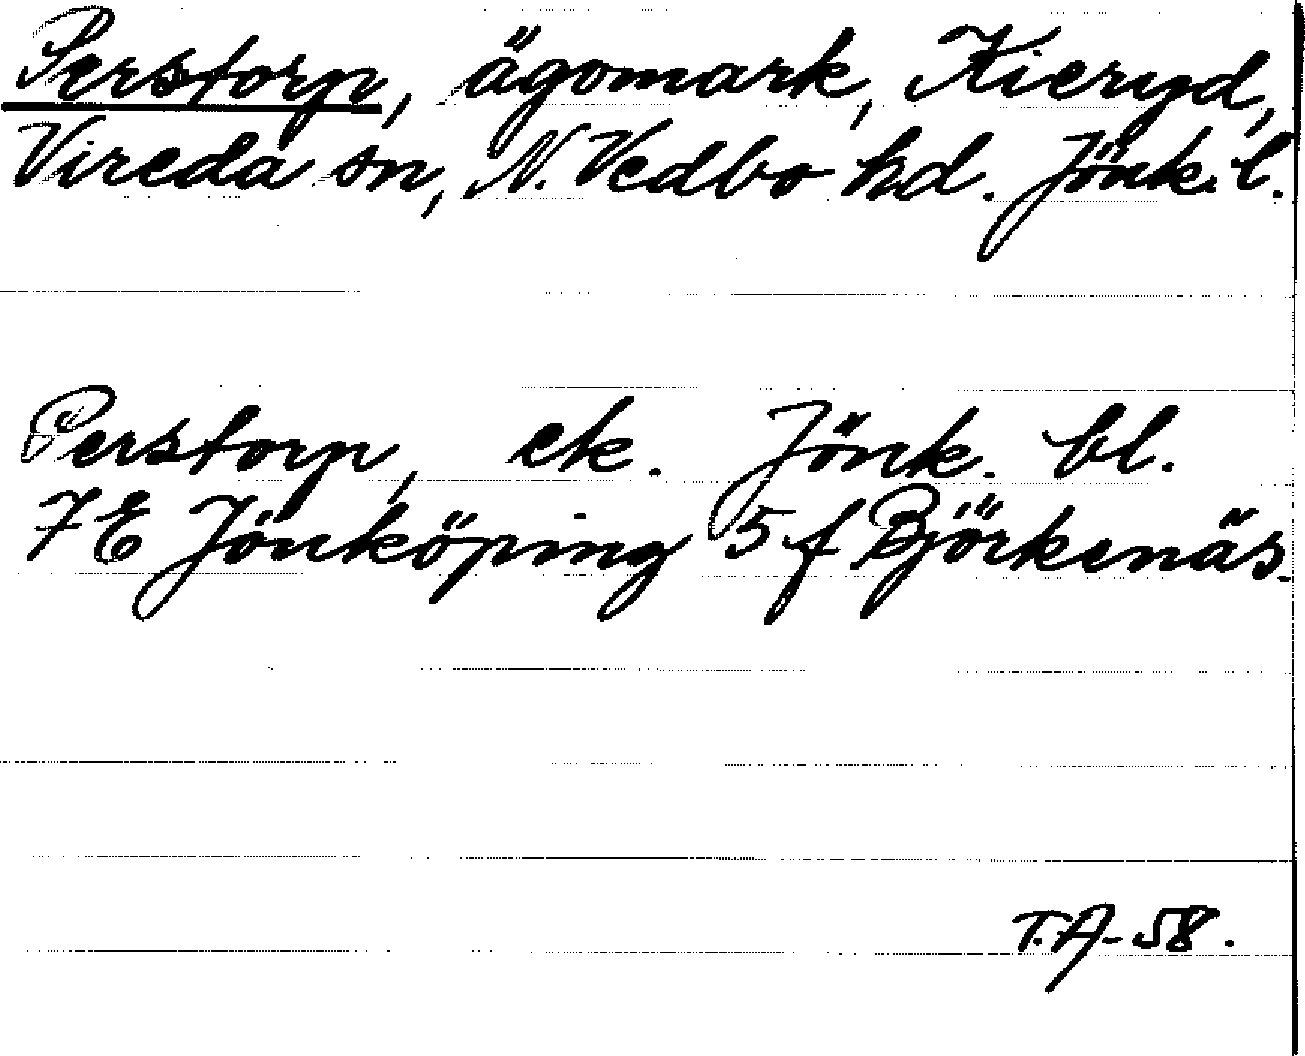 Perstorp, ägomark, Kieryd,
Vireda sn, N. Vedbo hd. Jönk. l.
Perstorp, ek. Jönk. bl.
7E Jönköping 5f Björkenäs.
T.A-58.